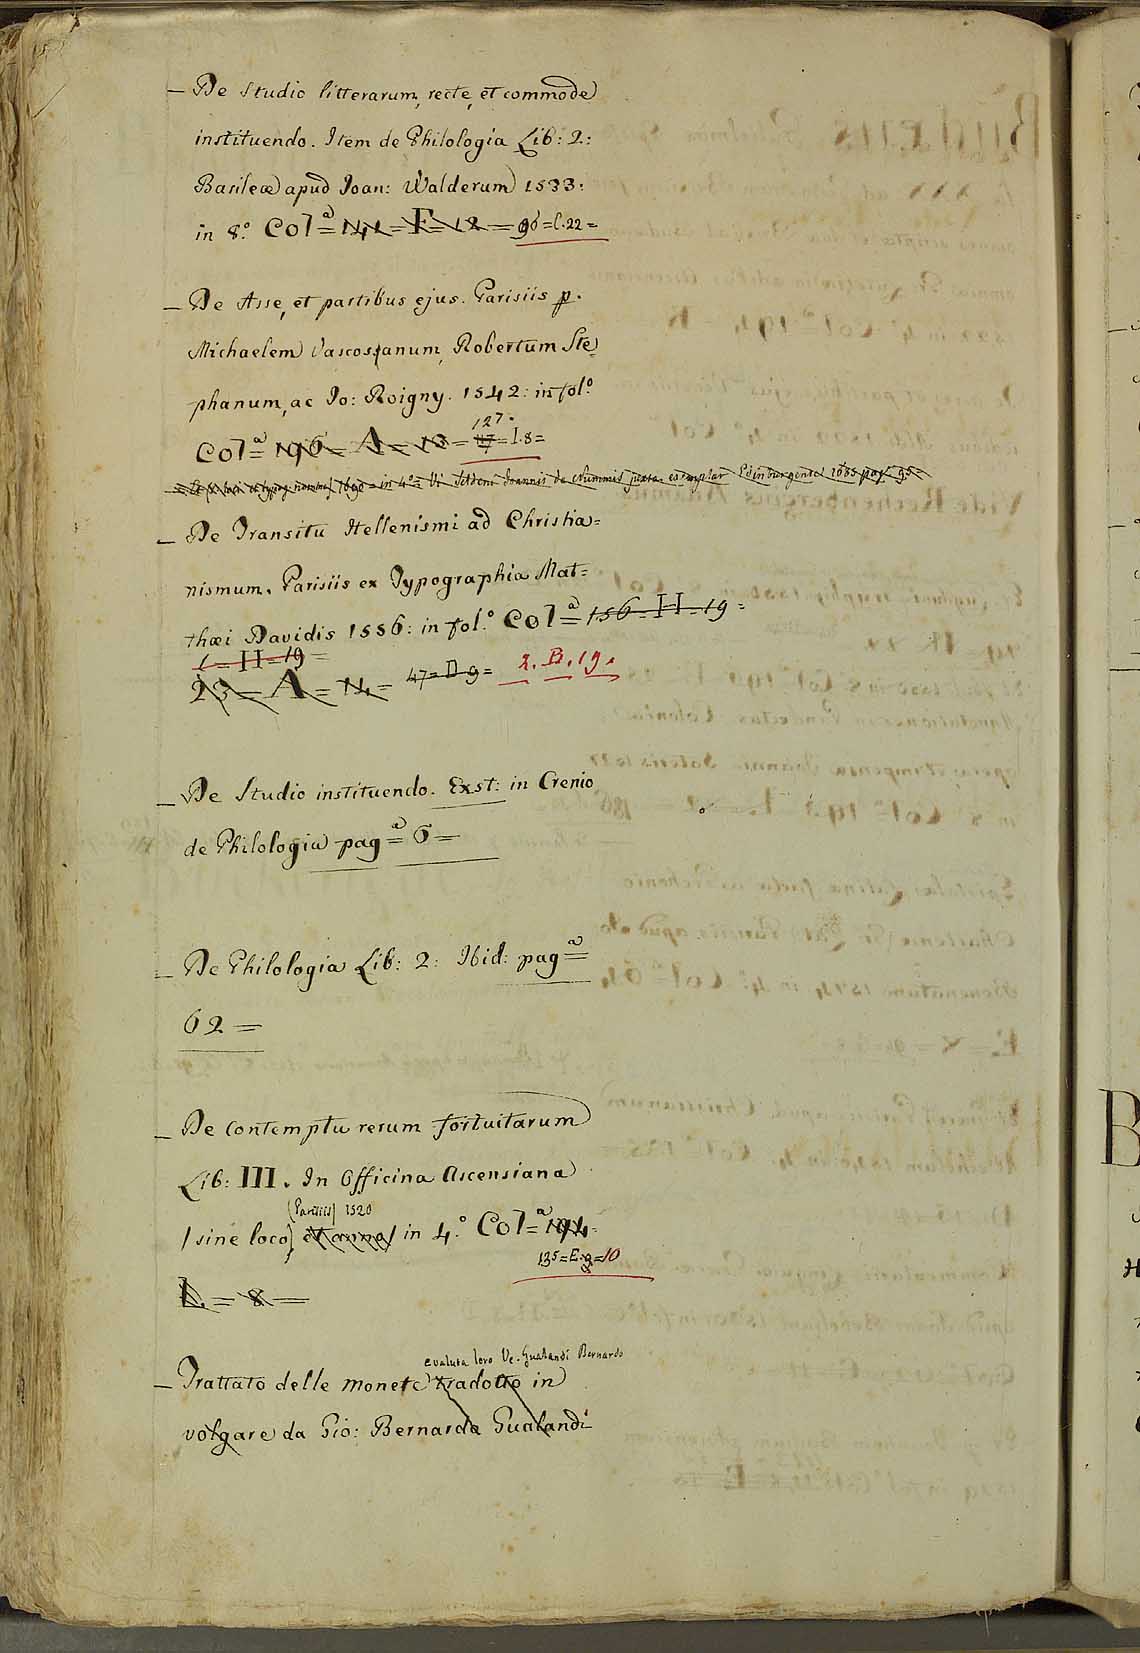 – De Studio litterarum, recte, et commode
instituendo. Item de Philologia Lib: 2:
Basileæ apud Ioan: Walderum 1533:
in 8.° Col.ª = 141 = F = 12 = 96 = C. 22 =
– De Asse, et partibus ejus. Parisiis p.
Michaelem Vascosanum, Robertum Ste=
phanum, ac Io: Roigny. 1542: in fol.°
127.
Col.ª = 196 = A = 13 = = I. 8 =
1690 = in 4.° = Seldeni Joannis de Nummis juxta exemplar
– De Transitu Hellenismi ad Christia=
nismum. Parisiis ex Typographia Mat=
thæi Davidis 1556: in fol.° Col.ª = 156 = H = 19 =
1 = H = 19 =
23 = A = 14 = 47 = D 9 = 2. B. 19.
– De Studio instituendo. Exst: in Crenio
de Philologia pag.ª = 6 =
– De Philologia Lib: 2: Ibid: pag.ª =
62 =
– De contemptu rerum fortuitarum
Lib: III. In Officina Ascensiana
(Parisiis) 1520
/ sine loco, et anno / in 4.° Col.ª = 194 =
135 = E. 9 = 10
L. = 8 =
evaluta loro Ve. Gualandi Bernardo
– Trattato delle monete tradotto in
volgare da Gio: Bernardo Gualandi